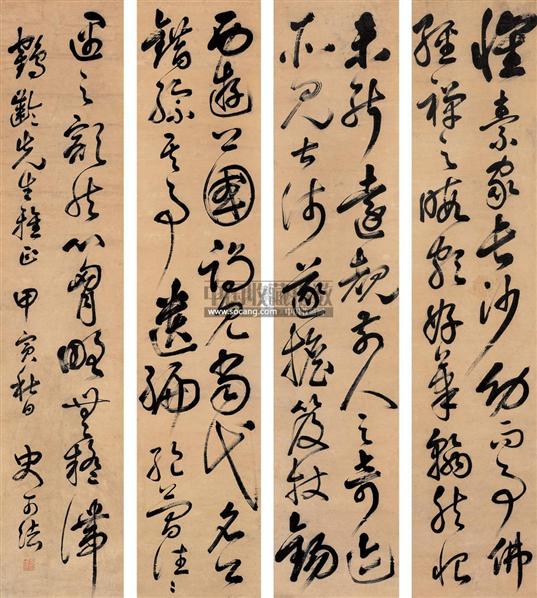 懷素家長沙幼而事佛
經禪之暇頗好筆翰然恨
未能遠覩前人之奇迹
所見甚淺遂擔笈杖錫
西遊上國謁見當代名公
錯綜其事遺編絕簡往々
遇之豁然心胸略無疑滯
鶴齡先生雅正 甲寅秋日 史可法
www.socang.com